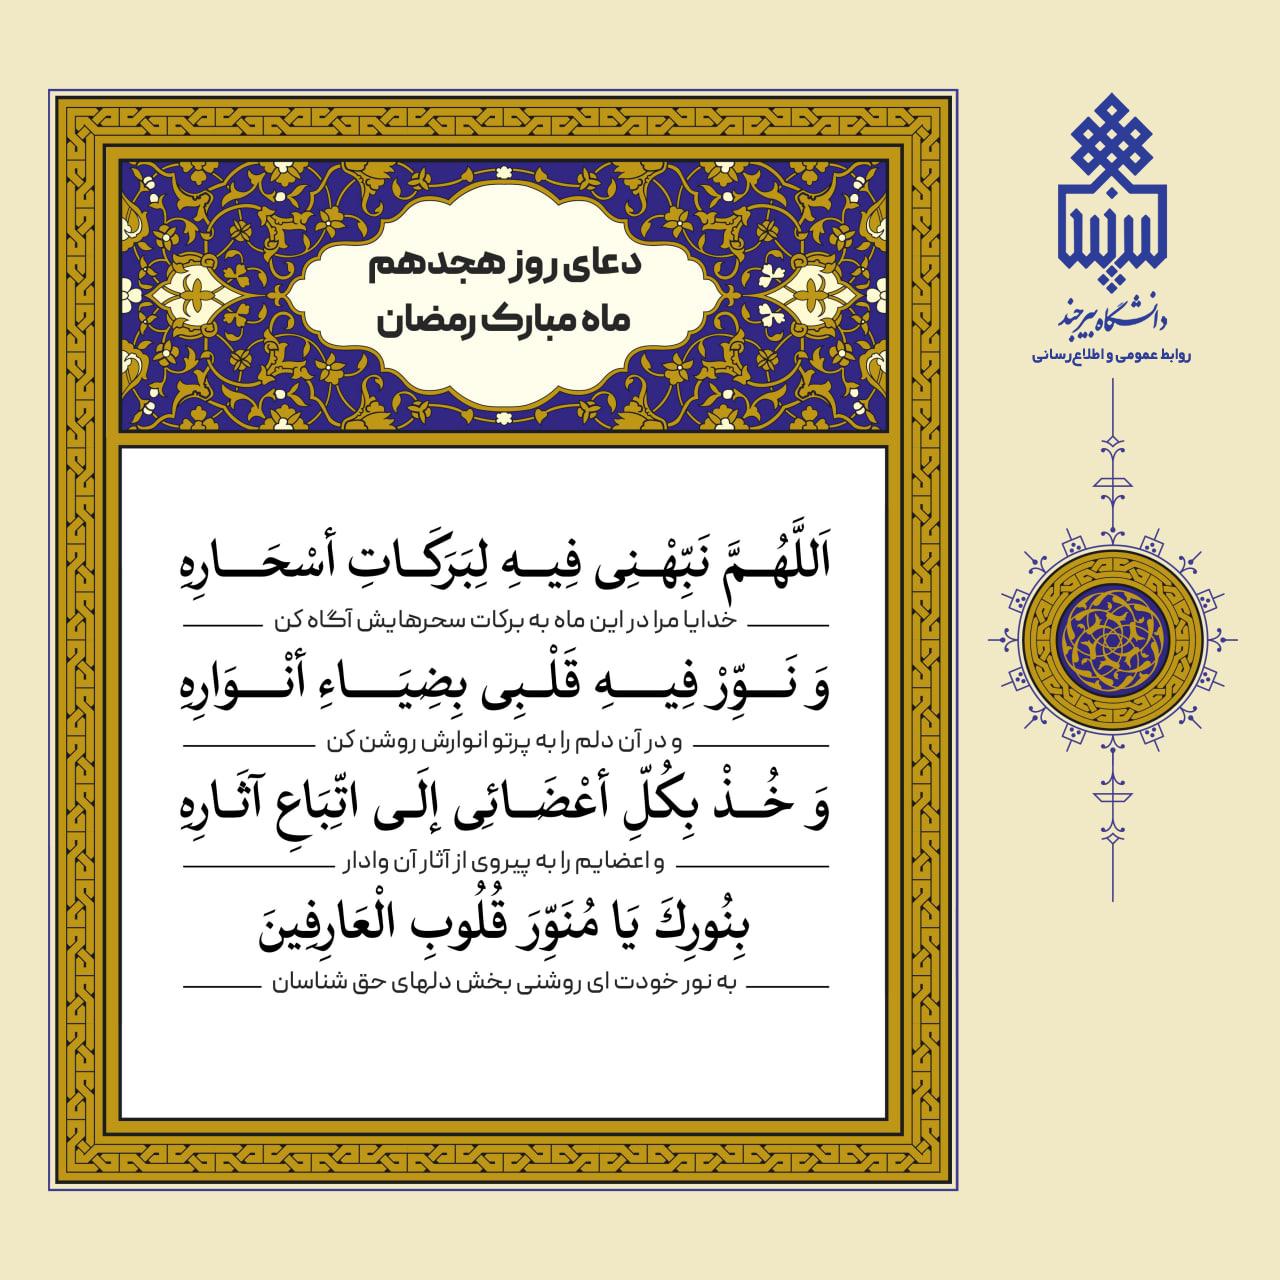 دعای روز هجدهم
ماه مبارک رمضان
اَللَّهُمَّ نَبِّهْنِی فِیهِ لِبَرَکَاتِ أسْحَارِهِ
خدایا مرا در این ماه به برکات سحرهایش آگاه کن
وَ نَوِّرْ فِیهِ قَلْبِی بِضِیَاءِ أنْوَارِهِ
و در آن دلم را به پرتو انوارش روشن کن
وَ خُذْ بِکُلِّ أعْضَائِی إلَى اتِّبَاعِ آثَارِهِ
و اعضایم را به پیروی از آثار آن وادار
بِنُورِكَ یَا مُنَوِّرَ قُلُوبِ الْعَارِفِینَ
به نور خودت ای روشنی بخش دلهای حق شناسان
دانشگاه بیرجند
روابط عمومی و اطلاع‌رسانی